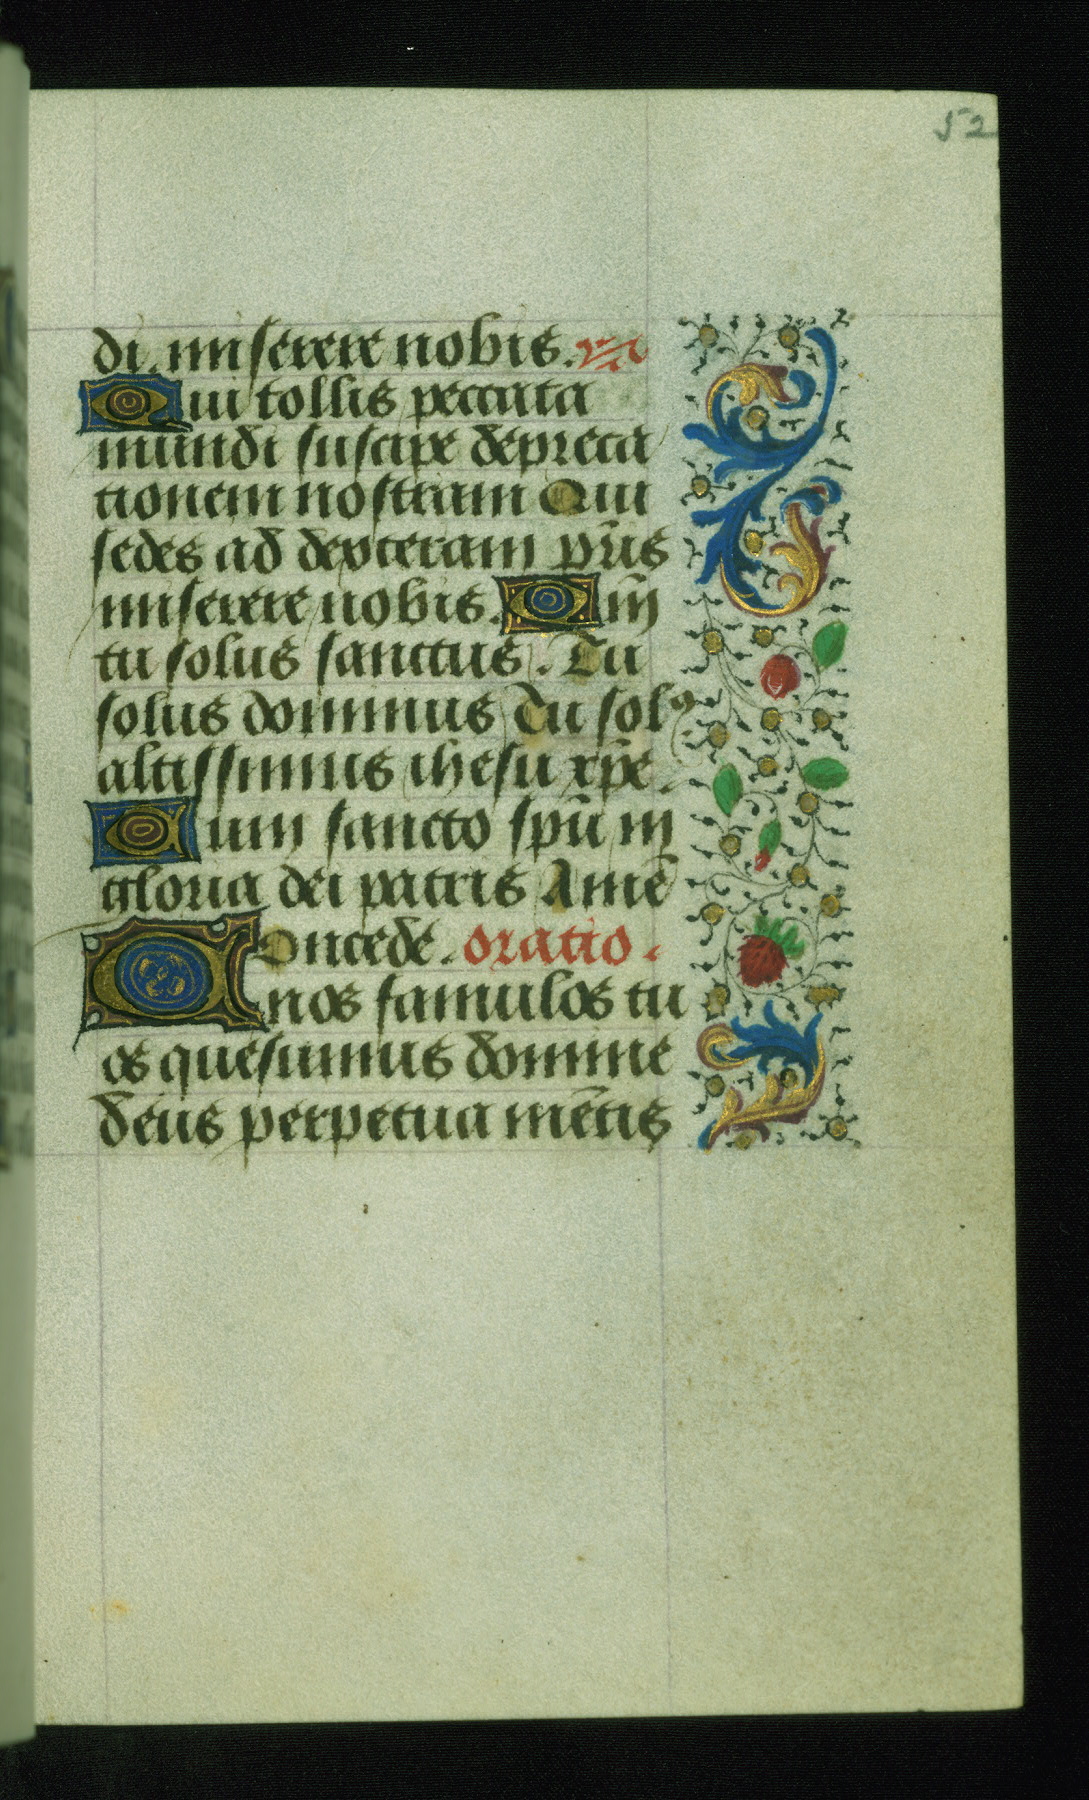 52
di. miserere nobis.
Qui tollis peccata
mundi suscipe depreca
tionem nostram Qui
sedes ad dexteram pr̄is
miserere nobis. Qm̄
tu solus sanctus. Tu
solus dominus Tu solꝰ
altissimus ihesu xp̄e.
Cum sancto sp̄u in
gloria dei patris Amē
Concede. oratio.
nos famulos tu
os quesumus domine
deus perpetua mētis